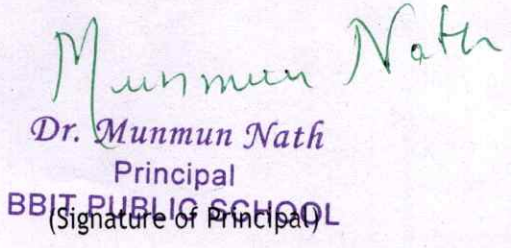 Munmun Nath
Dr. Munmun Nath
Principal
BBIT PUBLIC SCHOOL
(Signature of Principal)